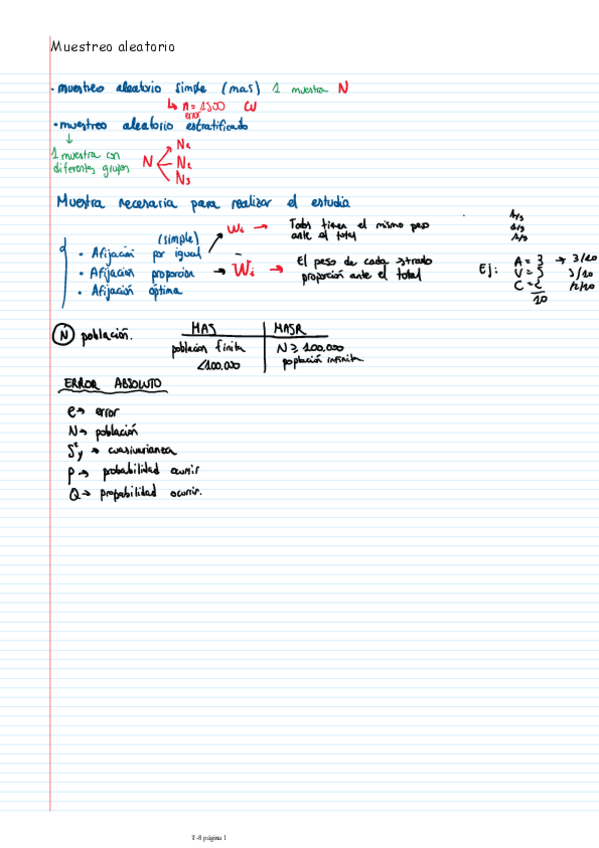 Muestreo aleatorio
· muestreo aleatorio simple (mas) 1 muestra N
↳ n = 1500
error
· muestreo aleatorio estratificado
↓
1 muestra con
diferentes grupos
N
N₁
N₂
N₃
Muestra necesaria para realizar el estudio
(simple)
· Afijación por igual
· Afijación proporcion
· Afijación óptima
Wi → Todos tienen el mismo peso
ante el total
1/3
1/3
1/3
→ Wi → El peso de cada strado
proporción ante el total
Ej:
A = 3 → 3/10
V = 5 5/10
C = 2 2/10
10
N población.
MAS MASR
poblacion finita N ≥ 100.000
<100.000 poplación infinita
ERROR ABSOLUTO
e → error
N → población
S²y → cuasivarianza
P → probabilidad ocurrir
Q → propabilidad ocurrir.
T-8 página 1